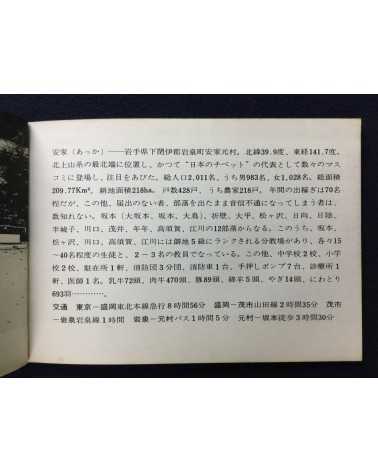 安家(あっか)――岩手県下閉伊郡岩泉町安家元村。北緯39.9度、東経141.7度、
北上山系の最北端に位置し、かつて“日本のチベット”の代表として数々のマス
コミに登場し、注目をあびた。総人口2,011名、うち男983名、女1,028名、総面積
209.77Km²、耕地面積218ha。戸数428戸、うち農家218戸。年間の出稼ぎは70名
程だが、この他、届出のない者、部落を出たまま音信不通になってしまう者は、
数知れない。坂本(大坂本、坂本、大鳥)、折壁、大平、松ヶ沢、日向、日陰、
半城子、川口、茂井、年年、高須賀、江川の12部落からなる。このうち、坂本、
松ヶ沢、川口、高須賀、江川には僻地5級にランクされる分教場があり、各々15
〜40名程の生徒と、2−3名の教員でなっている。この他、中学校2校、小学
校2校、駐在所1軒、消防団3分団、消防車1台、手押しポンプ7台、診療所1
軒、医師1名。乳牛72頭、肉牛470頭、豚89頭、綿羊5頭、やぎ14頭、にわとり
693羽…………。
交通 東京―盛岡東北本線急行8時間56分 盛岡―茂市山田線2時間35分 茂市
―岩泉岩泉線1時間 岩泉―元村バス1時間5分 元村―坂本徒歩3時間30分